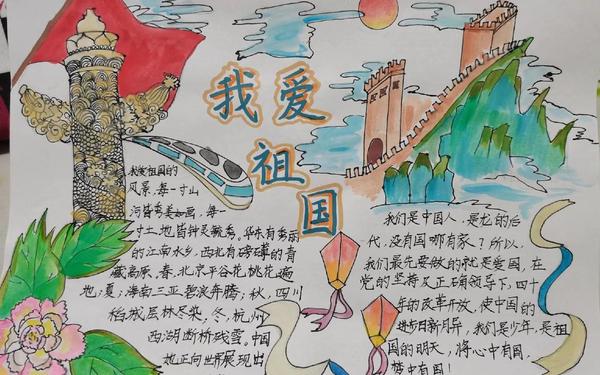 我爱祖国
我爱祖国的
风景,每一寸山
河皆秀美如画,每一
寸土地皆钟灵毓秀。华东有秀丽
的江南水乡,西北有磅礴的青
藏高原。春,北京平谷花,桃花遍
地;夏;海南三亚碧浪奔腾;秋,四川
稻城层林尽染,冬,杭州
西湖断桥残雪。中国
地正向世界展现出
我们是中国人,是龙的后
代,没有国哪有家?所以,
我们最先要做的就是爱国,在
党的坚持及正确领导下,四十
年的改革开放,使中国的
进步日新月异,我们是少年,是祖
国的明天,将心中有国,
梦中有国!